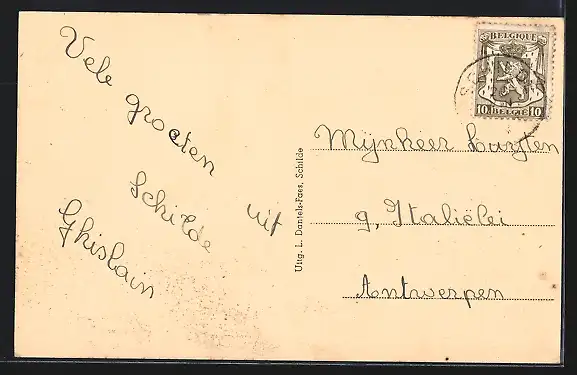 Vele groeten
uit
Schilde
Ghislain
Uitg. L. Daniels-Faes, Schilde
BELGIQUE
10 BELGIE 10
Mijnheer
9, Italiëlei
Antwerpen